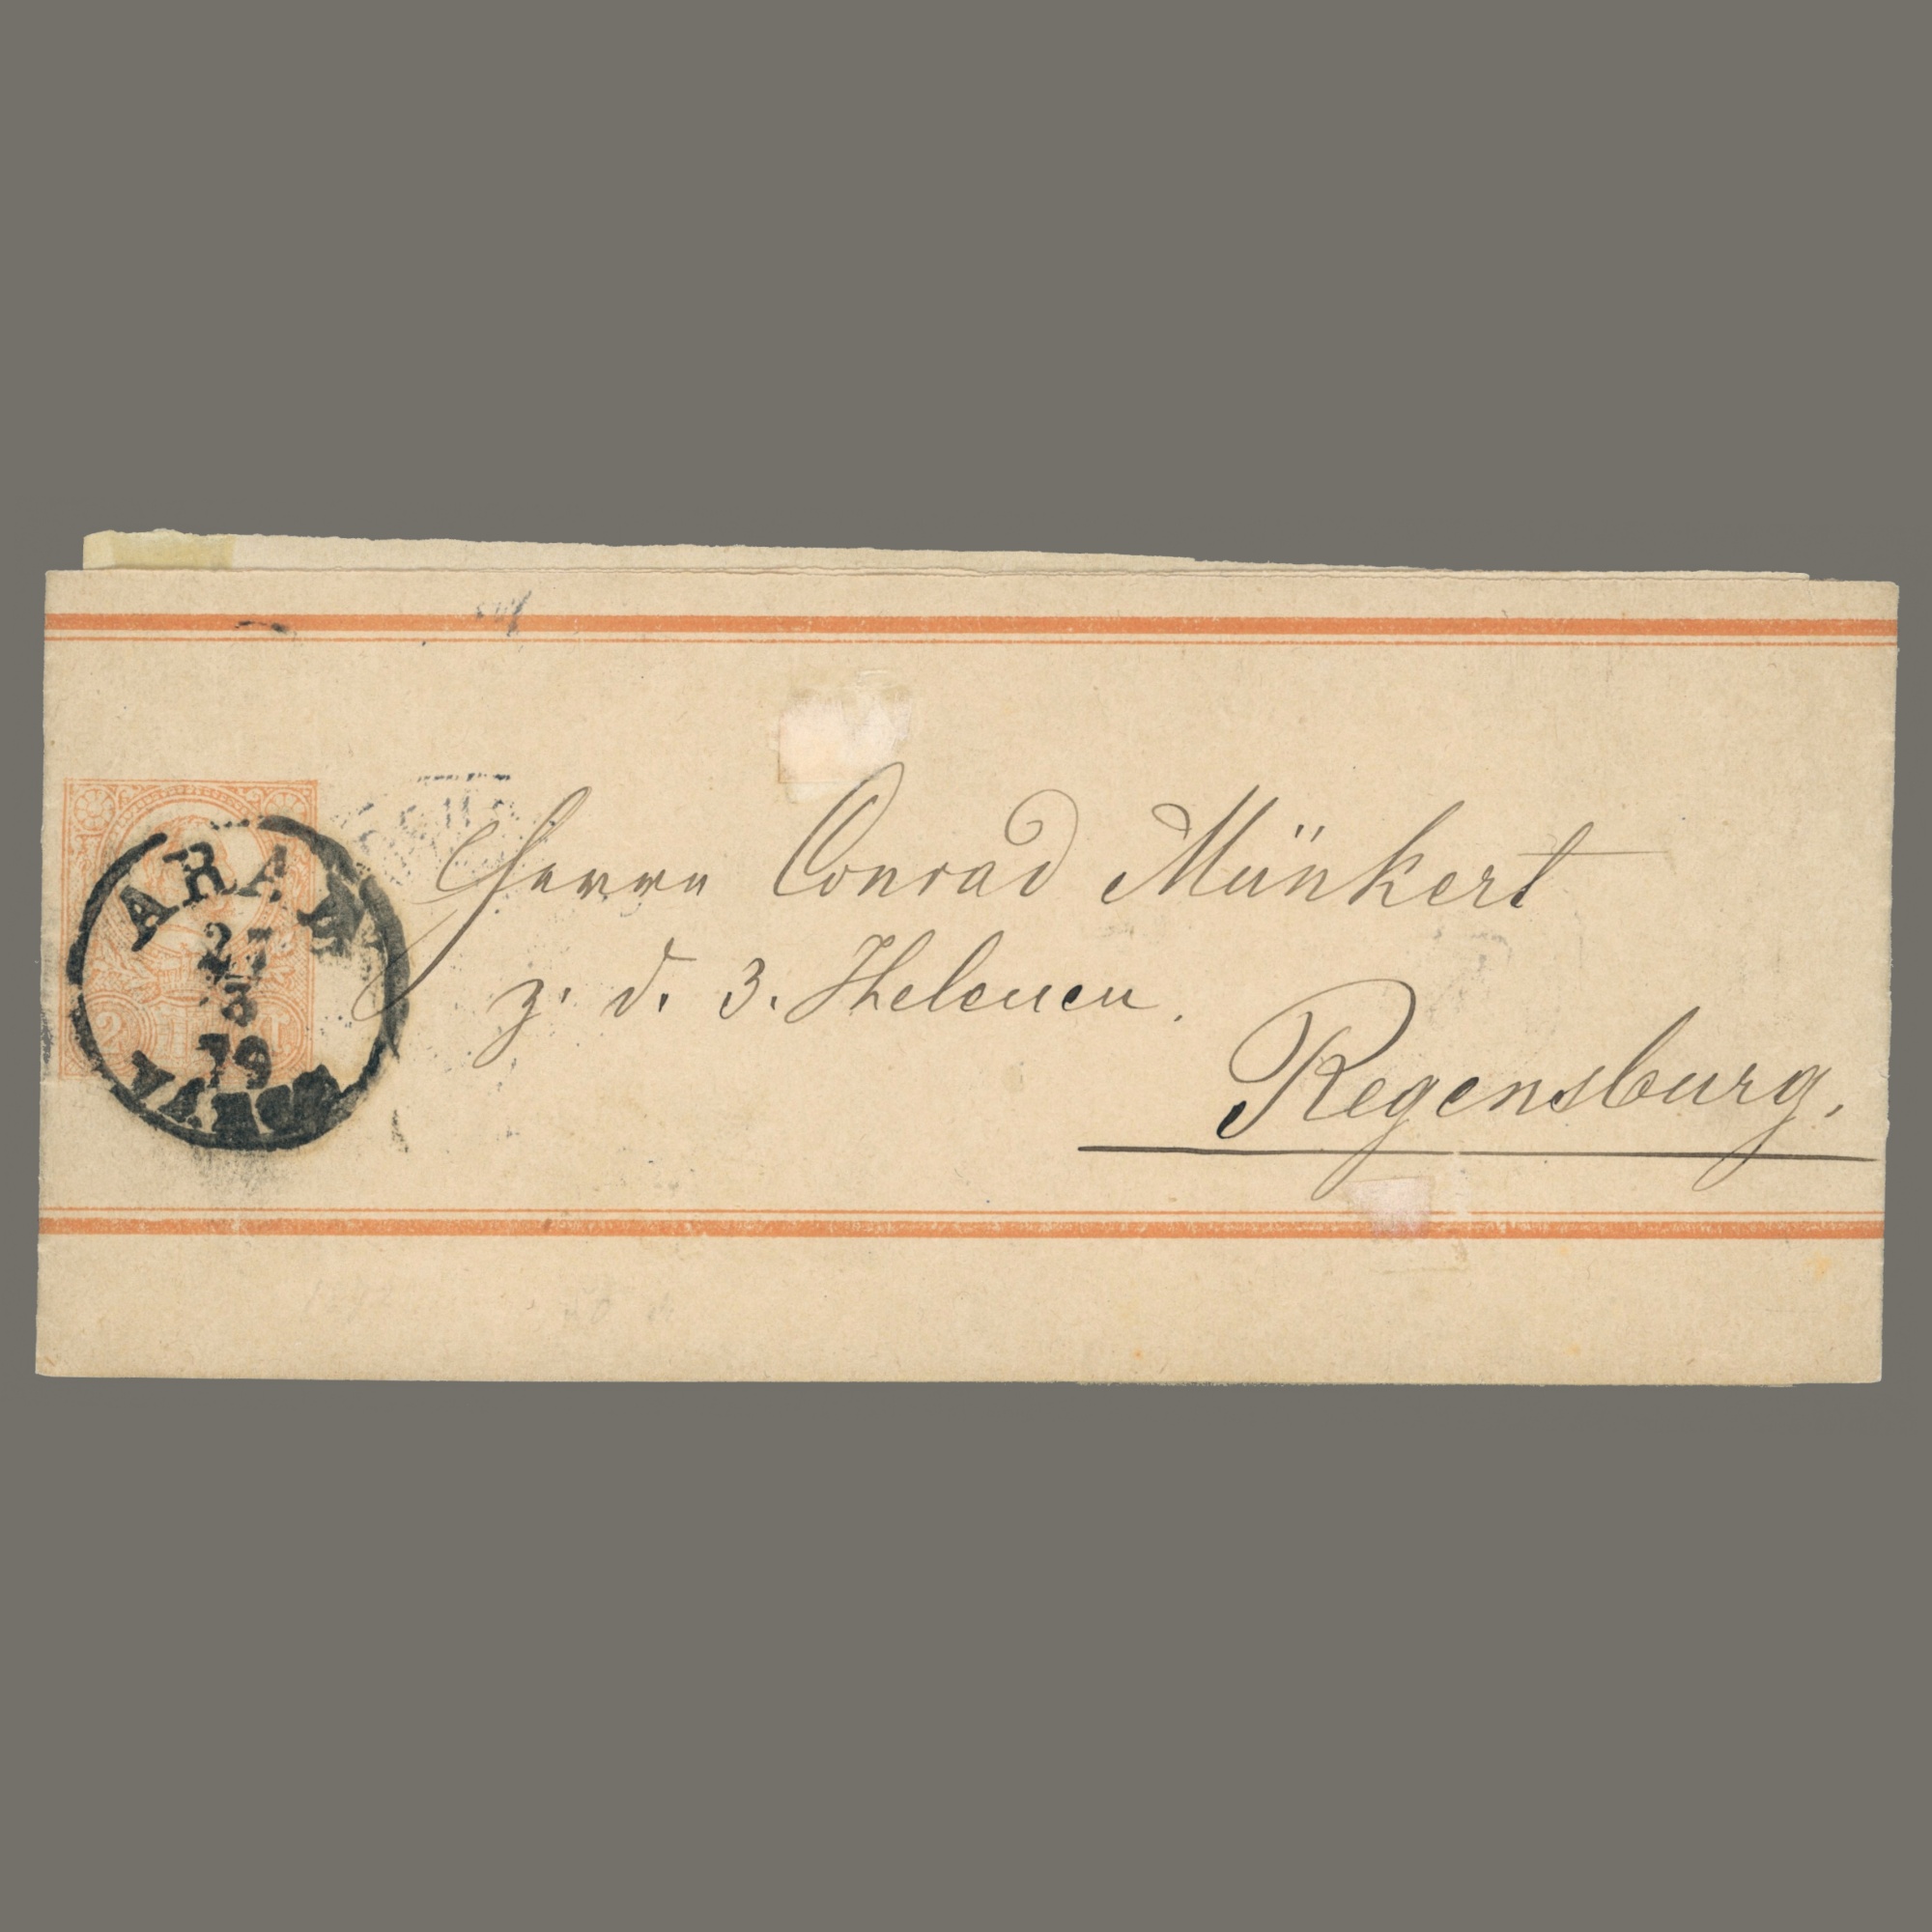 ARAD
27
3
79
2
Herrn Conrad Münkert
z. d. 3. Helenen.
Regensburg.